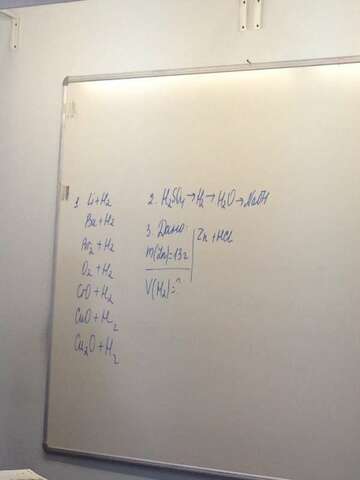 1. Li + H₂
Ba + H₂
N₂ + H₂
O₂ + H₂
CrO + H₂
CuO + H₂
Cu₂O + H₂
2. H₂SO₄ → H₂ → H₂O → NaOH
3. Дано:
m(Zn) = 13г
Zn + HCl
V(H₂) = ?